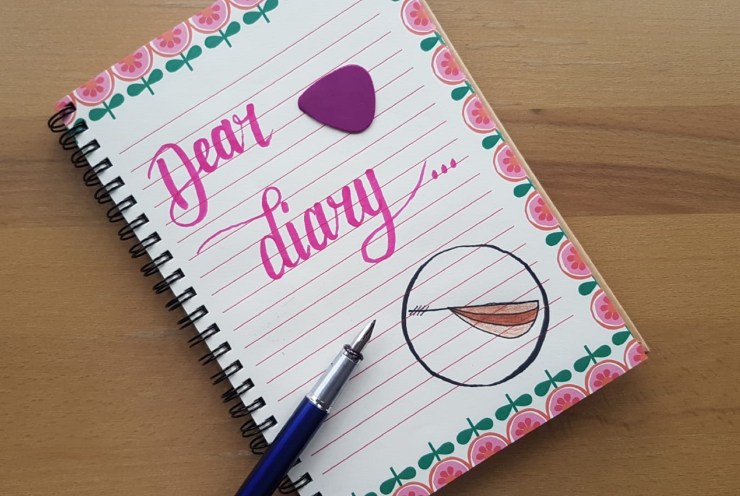 Dear
diary...